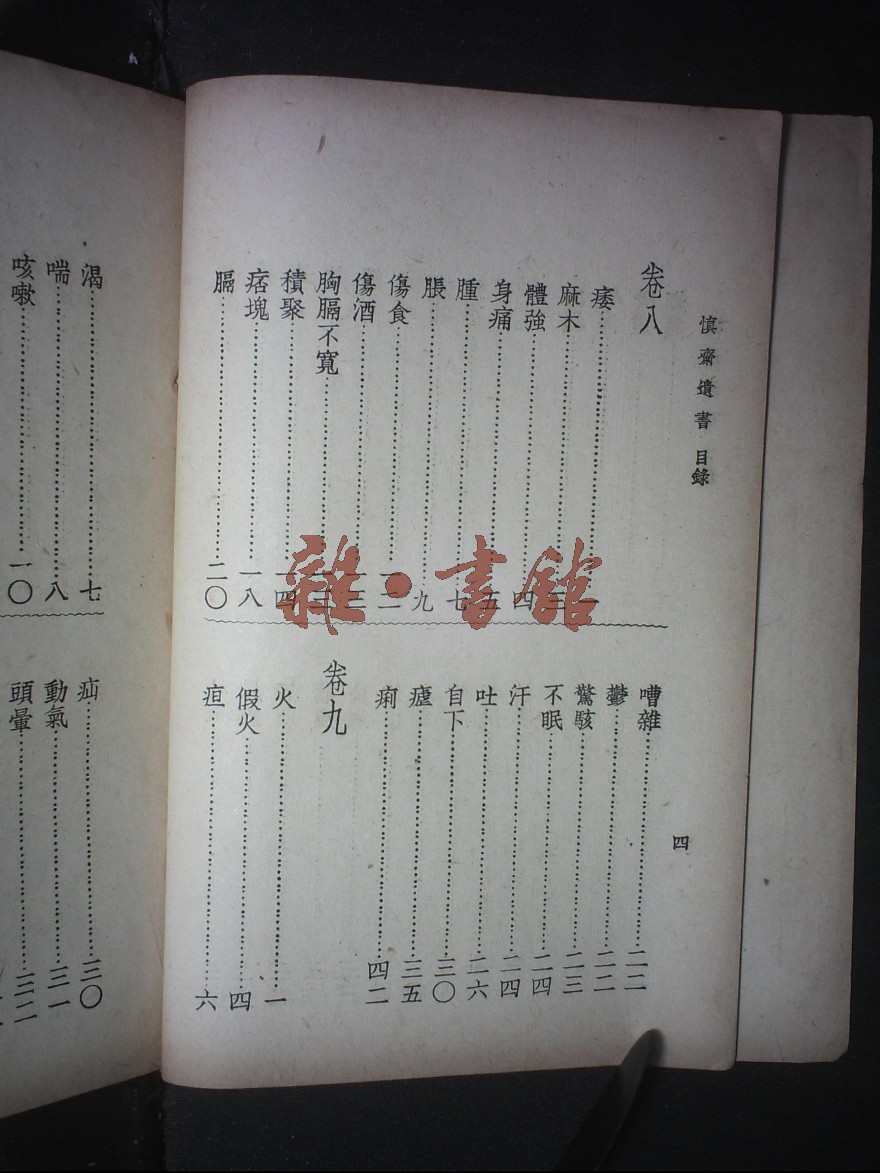 慎齋遺書 目錄
四
卷八
痿
麻木……三
體強……四
身痛……五
腫……七
脹……九
傷食
傷酒
胸膈不寬
積聚……一四
痞塊……一八
膈……二〇
嘈雜……二二
鬱……二二
驚駭……二三
不眠……二四
汗……二四
吐……二六
自下……三〇
瘧……三五
痢……四二
卷九
火……一
假火……四
疸……六
渴……七
喘……八
咳嗽……一〇
疝……三〇
動氣……三一
頭暈……三二
雜·書館